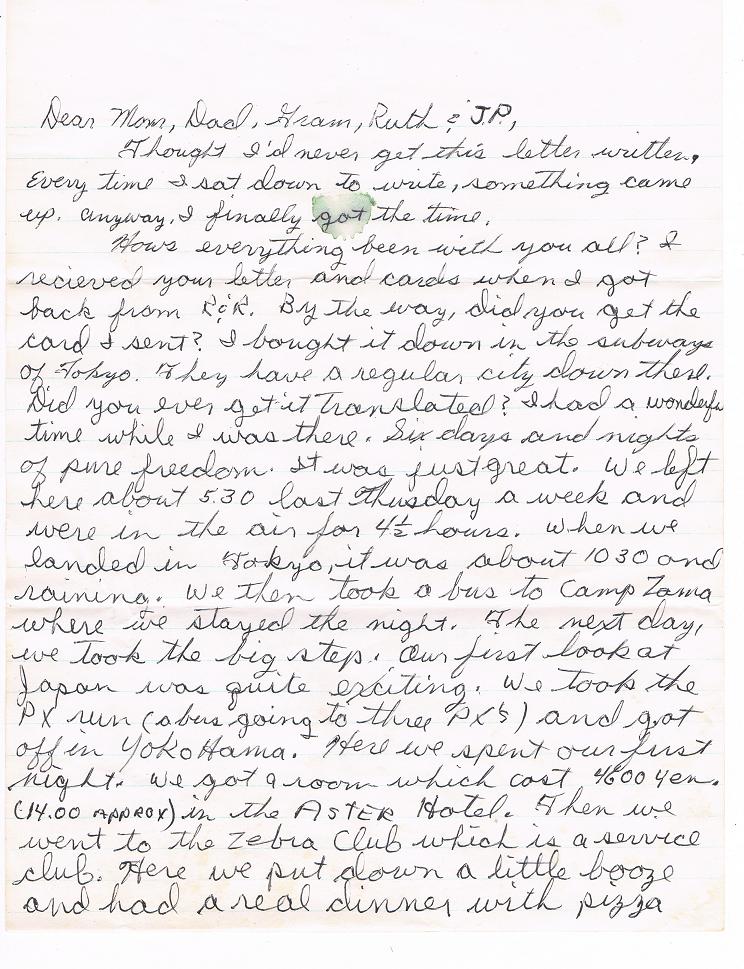 Dear Mom, Dad, Gram, Ruth & J.P.,
Thought I'd never get this letter written.
Every time I sat down to write, something came
up. anyway, I finally got the time.
Hows everything been with you all? I
recieved your letter and cards when I got
back from R&R. By the way, did you get the
card I sent? I bought it down in the subways
of Tokyo. They have a regular city down there.
Did you ever get it Translated? I had a wonderfu
time while I was there. Six days and nights
of pure freedom. It was just great. We left
here about 530 last Thusday a week and
were in the air for 4½ hours. When we
landed in Tokyo, it was about 1030 and
raining. We then took a bus to Camp Zama
where we stayed the night. The next day,
we took the big step. Our first look at
Japan was quite exciting. We took the
PX run (a bus going to three PX's) and got
off in YokoHama. Here we spent our first
night. We got a room which cost 4600 yen.
(14.00 APPROX) in the ASTER Hotel. Then we
went to the Zebra Club which is a service
club. Here we put down a little booze
and had a real dinner with pizza